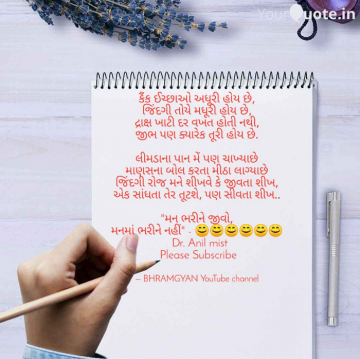 YourQuote.in
કૈંક ઈચ્છાઓ અધૂરી હોય છે,
જિંદગી તોયે મધૂરી હોય છે,
દ્રાક્ષ ખાટી દર વખત હોતી નથી,
જીભ પણ ક્યારેક તૂરી હોય છે.
લીમડાના પાન મેં પણ ચાખ્યાછે
માણસના બોલ કરતા મીઠા લાગ્યાછે
જિંદગી રોજ મને શીખવે કે જીવતા શીખ,
એક સાંધતા તેર તૂટશે, પણ સીવતા શીખ..
"મન ભરીને જીવો,
મનમાં ભરીને નહીં" - 😄😄😄😄😄😄
Dr. Anil mist
Please Subscribe
– BHRAMGYAN YouTube channel